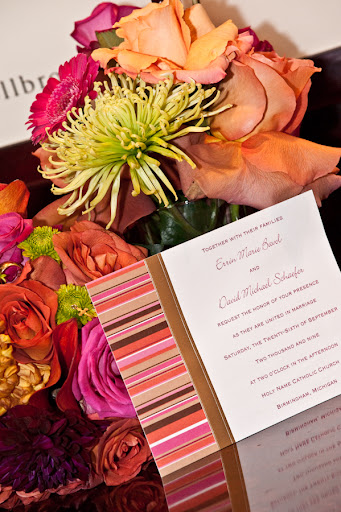 llbr
TOGETHER WITH THEIR FAMILIES
Errin Marie Bavol
AND
David Michael Schaefer
REQUEST THE HONOR OF YOUR PRESENCE
AS THEY ARE UNITED IN MARRIAGE
SATURDAY, THE TWENTY-SIXTH OF SEPTEMBER
TWO THOUSAND AND NINE
AT TWO O'CLOCK IN THE AFTERNOON
HOLY NAME CATHOLIC CHURCH
BIRMINGHAM, MICHIGAN